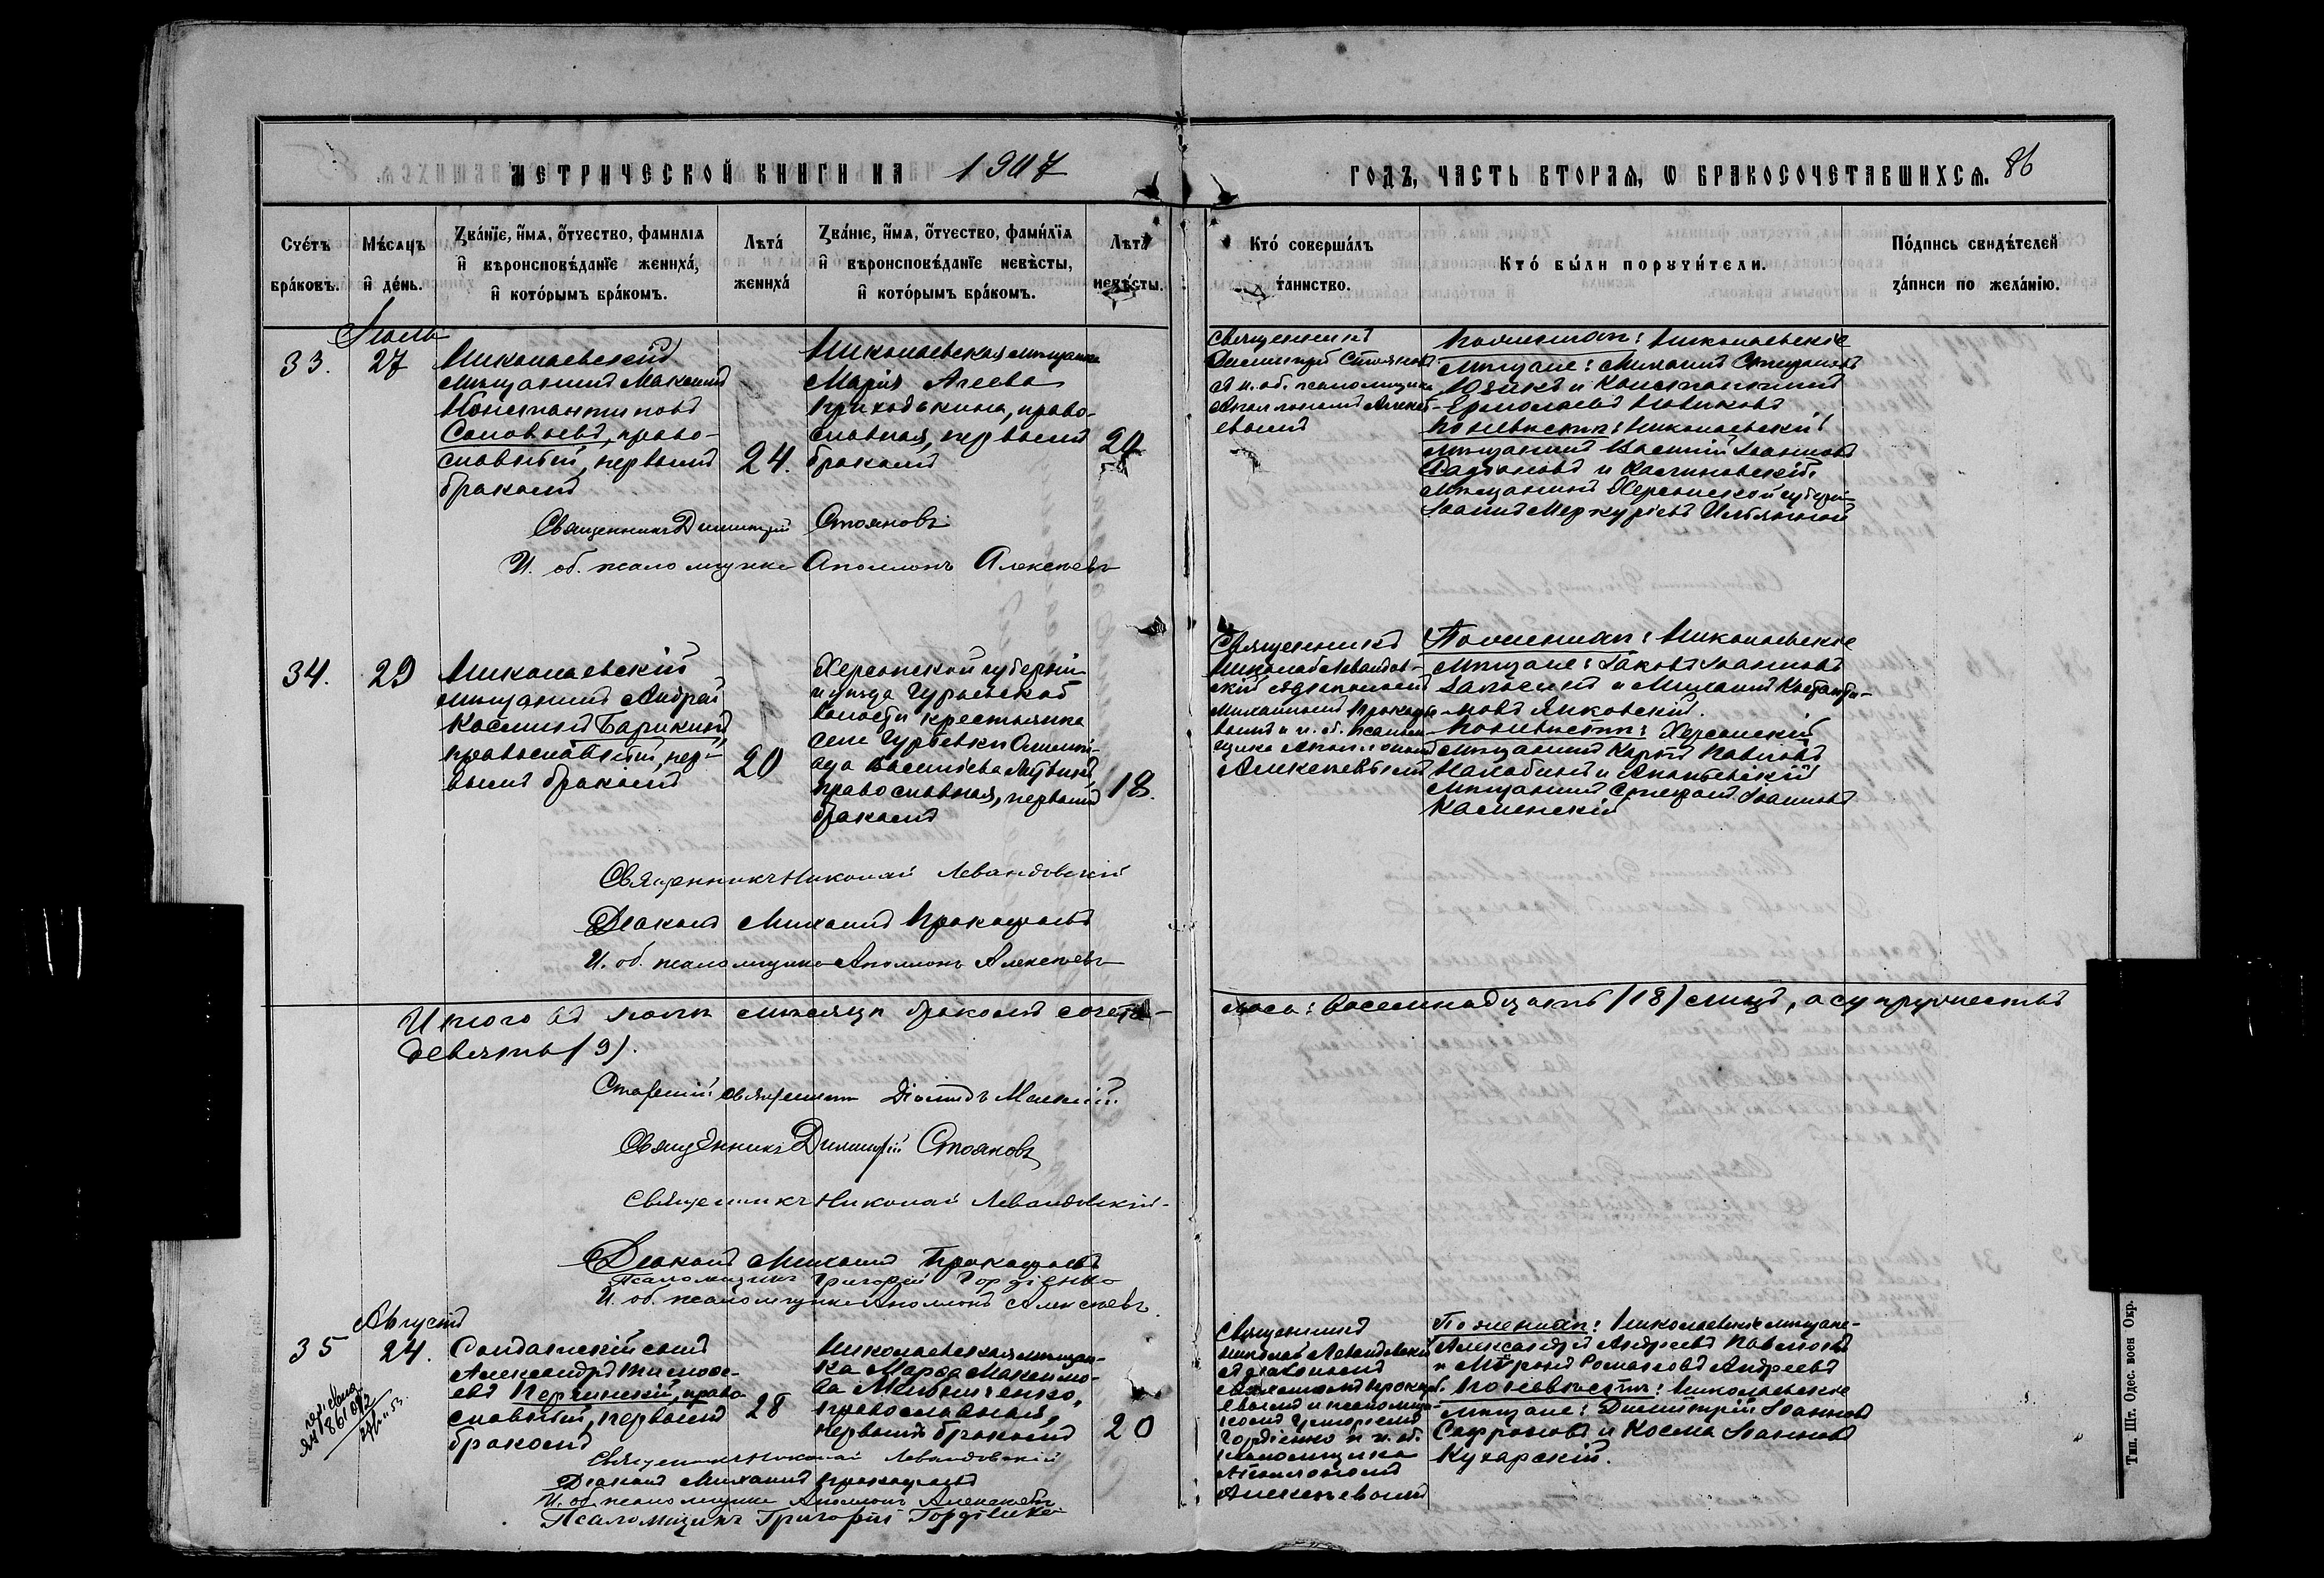 МЕТРИЧЕСКОЙ КНИГИ НА 1907
ГОДЪ, ЧАСТЬ ВТОРАЯ, Ѡ БРАКОСОЧЕТАВШИХСЯ.
86
Счетъ браковъ.
Мѣсяцъ и день.
Званїе, имя, отчество, фамилїя и вѣроисповѣданїе жениха, и которымъ бракомъ.
Лѣта жениха
Званїе, имя, отчество, фамилїя и вѣроисповѣданїе невѣсты, и которымъ бракомъ.
Лѣта невѣсты.
Кто совершалъ таинство.
Кто были поручители.
Подпись свидѣтелей записи по желанїю.
Июль
33.
27
Николаевскій
мѣщанинъ Максимъ
Константиновъ
Соловьевъ, право-
славный, первымъ
бракомъ
24.
Николаевская мѣщанка
Марія Агеева
Приходькина, право-
славная, первымъ
бракомъ
20
Священникъ
Димитрій Стояновъ
съ и. об. псаломщика
Аполлономъ Алексѣ-
евымъ
По женихѣ: Николаевскіе
мѣщане: Михаилъ Стефановъ
и Константинъ
Ермолаевъ Новиковъ
По невѣстѣ: Николаевскій
мѣщанинъ Василій Іоанновъ
и
мѣщанинъ Херсонской губерніи
Іоаннъ Меркурьевъ
Священникъ Димитрій Стояновъ
И. об. псаломщика Аполлонъ Алексѣевъ
34.
29
Николаевскій
мѣщанинъ Андрей
Косминъ Барикинъ,
православный, пер-
вымъ бракомъ
20
Херсонской губерніи
и уѣзда Гурьевской
волости крестьянка
села Гурьевки
Васильева
православная, первымъ
бракомъ
18.
Священникъ
Николай Левандов-
скій съ діакономъ
Михаиломъ Прокофье-
вымъ и и. об. псалом-
щика Аполлономъ
Алексѣевымъ
По женихѣ: Николаевскіе
мѣщане: Іаковъ Іоанновъ
и Михаилъ Константи-
новъ Янковскій.
По невѣстѣ: Херсонскій
мѣщанинъ Карпъ Павловъ
и Ананьевскій
мѣщанинъ Стефанъ Іоанновъ
Каменскій
Священникъ Николай Левандовскій
Діаконъ Михаилъ Прокофьевъ
И. об. псаломщика Аполлонъ Алексѣевъ
Итого въ іюлѣ мѣсяцѣ бракомъ сочета-
лось: восемнадцать (18) лицъ, а супружествъ
девять (9).
Старшій священникъ
Священникъ Димитрій Стояновъ
Священникъ Николай Левандовскій
Діаконъ Михаилъ Прокофьевъ
Псаломщикъ Григорій Гордіенко
И. об. псаломщика Аполлонъ Алексѣевъ
Августъ
35
24.
Солдатскій сынъ
Александръ Тимофе-
евъ право-
славный, первымъ
бракомъ
28
Николаевская мѣщан-
ка Марѳа Максимо-
ва
православная,
первымъ бракомъ
20
Священникъ
Николай Левандовскій
съ діакономъ
Михаиломъ Прокофь-
евымъ и псаломщи-
комъ Григоріемъ
Гордіенко и и. об.
псаломщика
Аполлономъ
Алексѣевымъ
По женихѣ: Николаевскіе мѣщане-
Александръ Андреевъ Павловъ
и Миронъ Романовъ Андреевъ
По невѣстѣ: Николаевскіе
мѣщане: Димитрій Іоанновъ
Сафроновъ и Косма Іоанновъ
Кухарскій.
Священникъ Николай Левандовскій
Діаконъ Михаилъ Прокофьевъ
И. об. псаломщика Аполлонъ Алексѣевъ
Псаломщикъ Григорій Гордіенко
Тип. Шт. Одес. воен Окр.